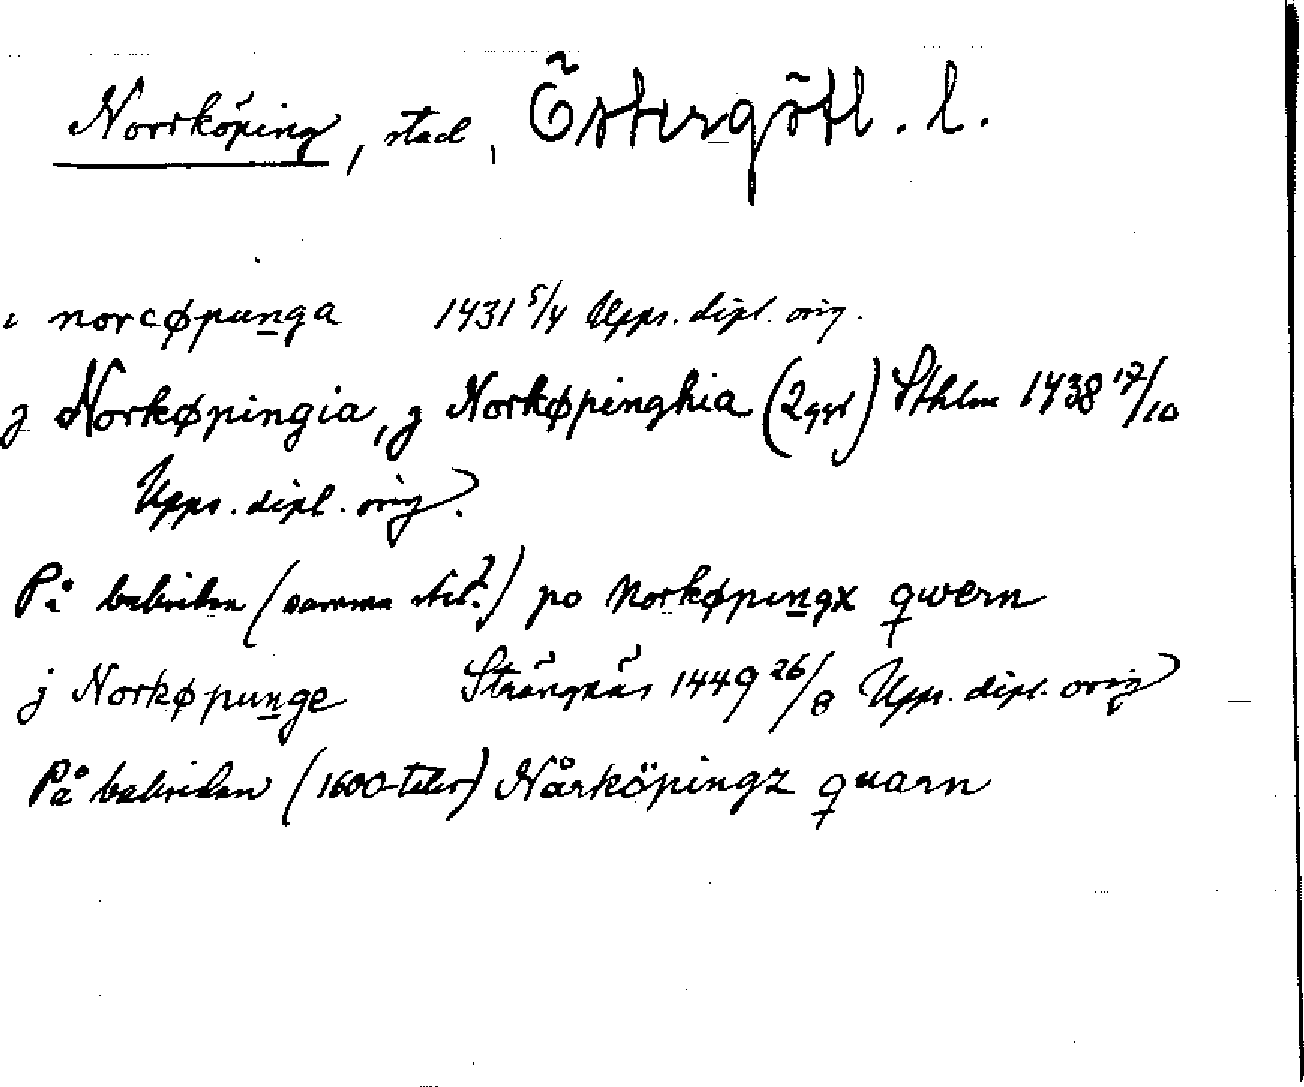 Norrköping, stad, Östergötl. l.
i norcøpunga 1431 5/4 Upps. dipl. orig.
j Norkøpingia, j Norkøpinghia (2 ggr) Sthlm 1438 17/10
Upps. dipl. orig.
På baksidan (samma stil?) po Norkøpingx qwern
j Norkøpunge Strängnäs 1449 26/8 Upps. dipl. orig
På baksidan (1600-talet) Nårköpingz quarn